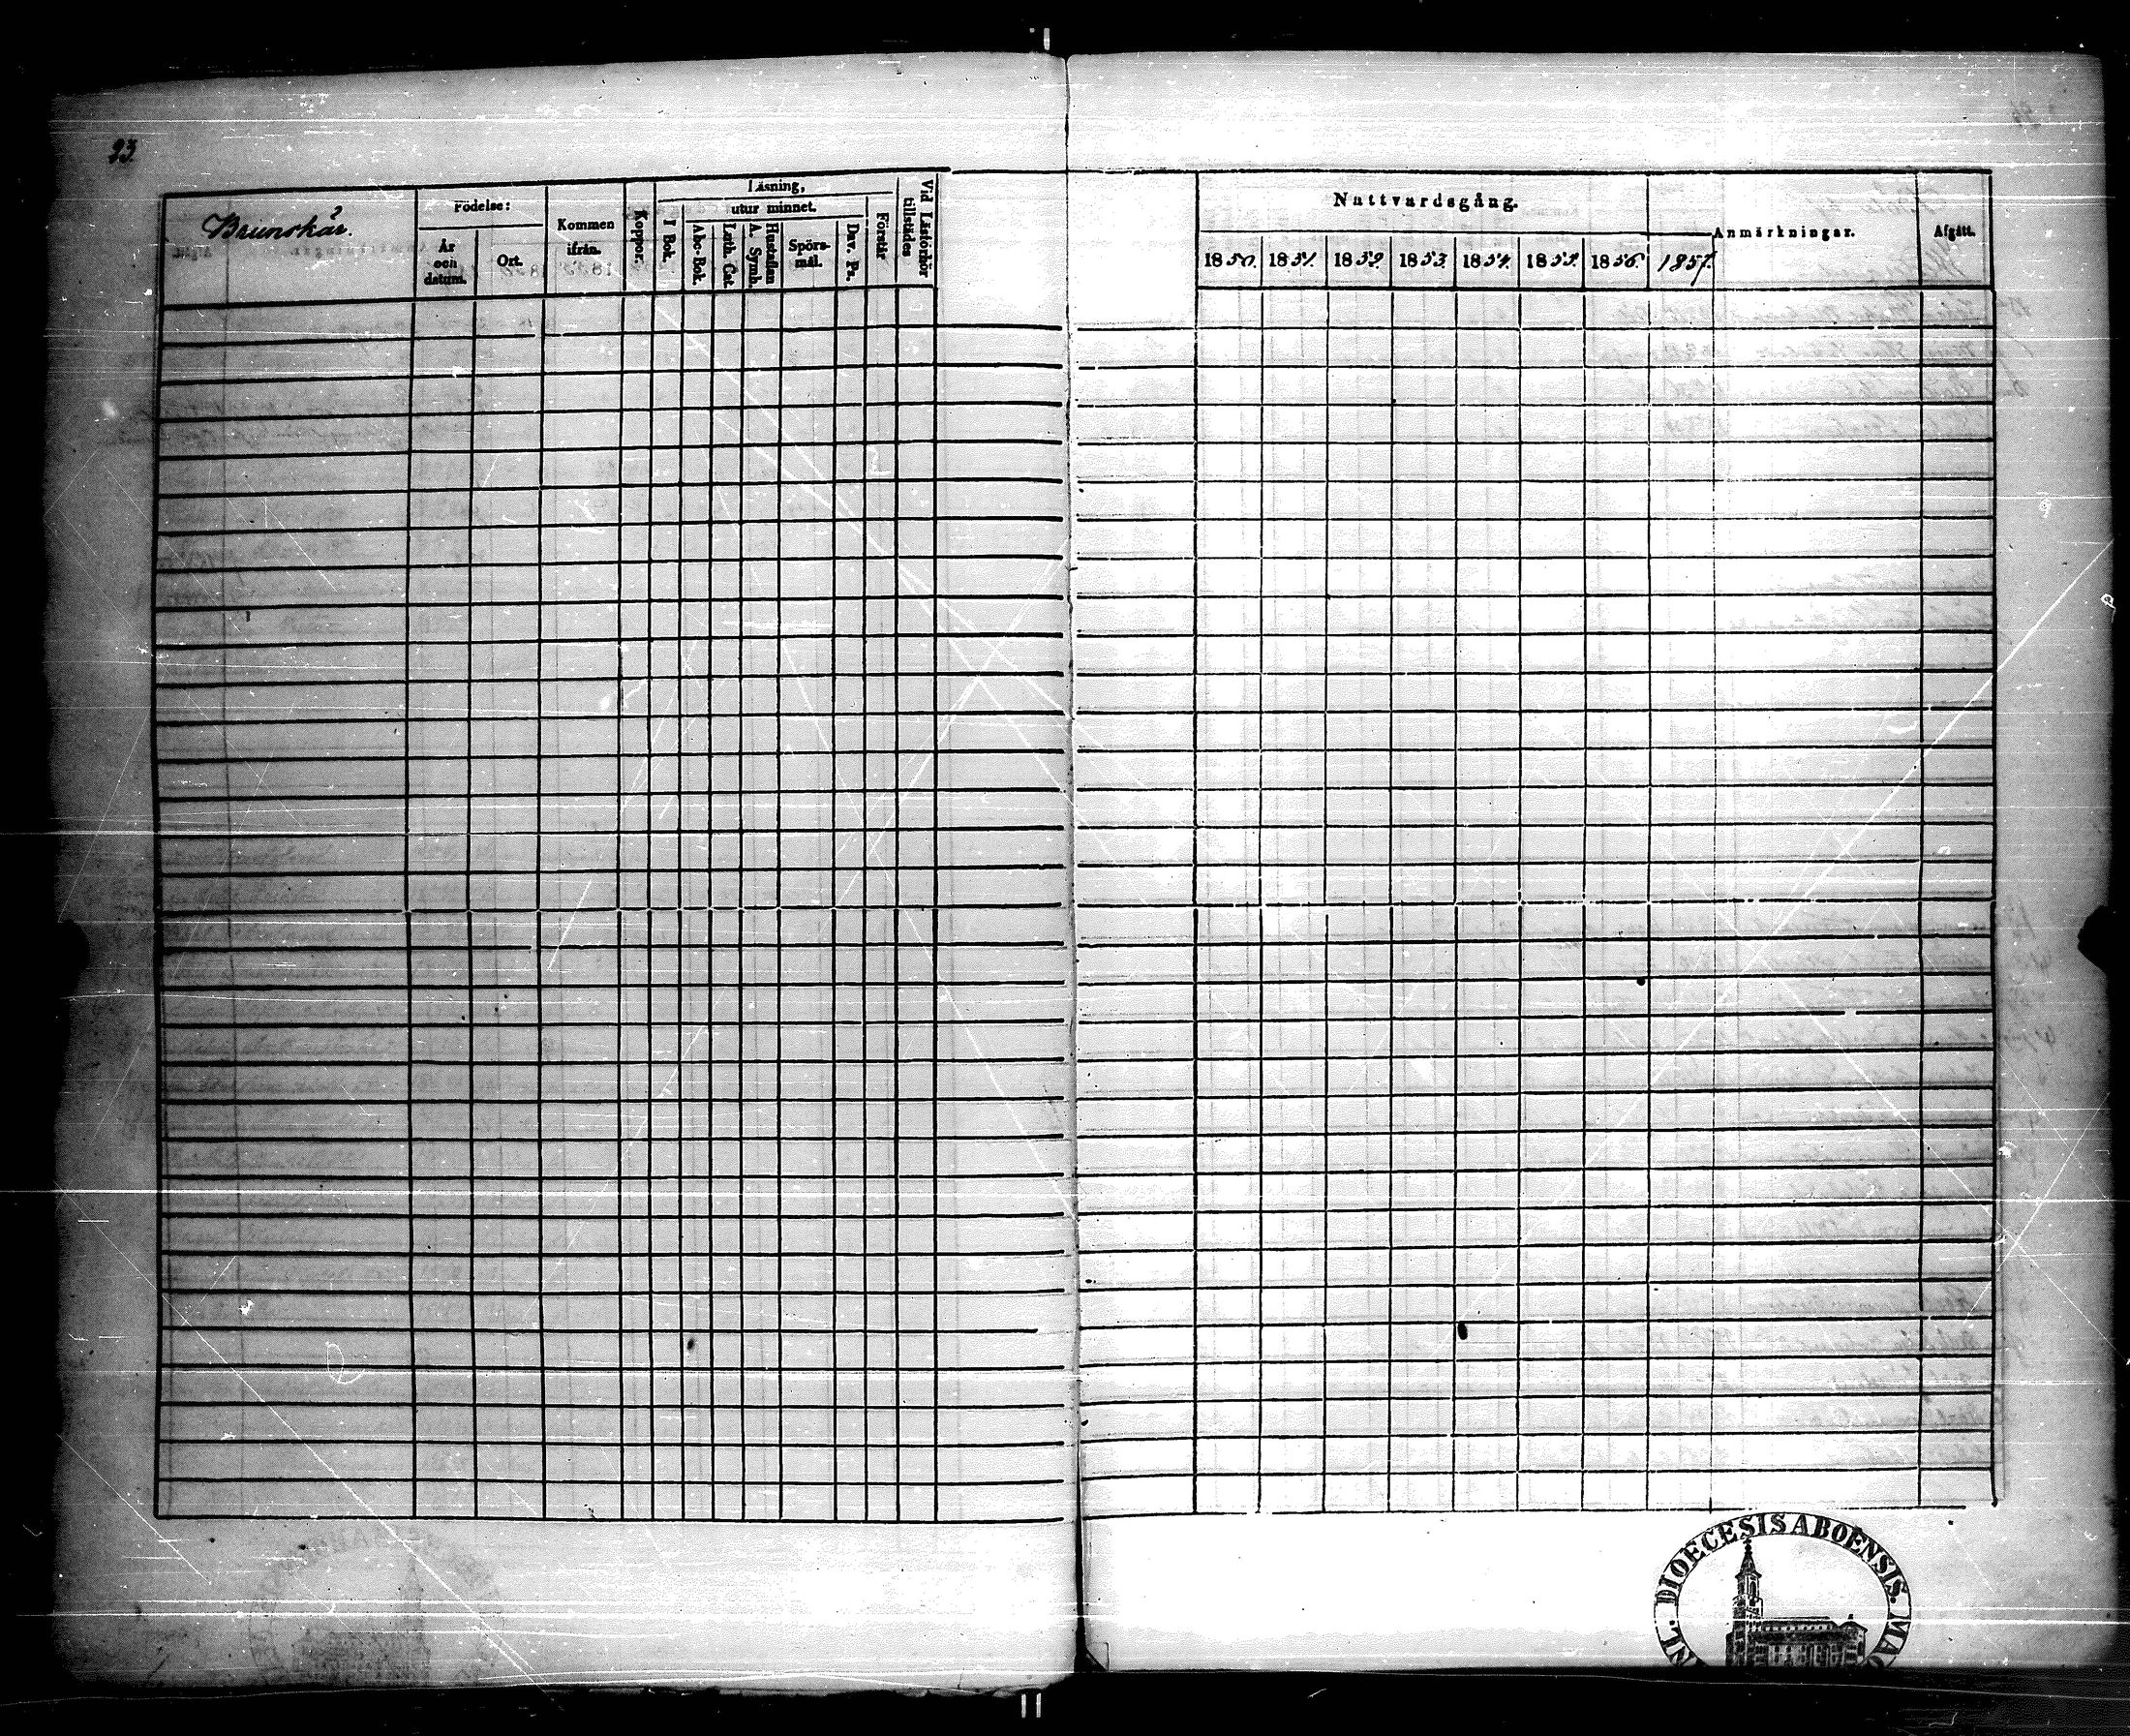 23.
Brunskär.
Födelse:
År
och
datum.
Ort.
Kommen
ifrån.
Koppor.
Läsning,
utur minnet.
I Bok.
Abc-Bok.
Luth. Cat
Hustaflan
A. Symb.
Spörs-
mål.
Dav. Ps.
Förstår
Vid Läsförhör
tillstädes
Nattvardsgång.
1850.
1851.
1852.
1853.
1854.
1855.
1856.
1857.
Anmärkningar.
Afgått.
DIOECESIS ABOENSIS.